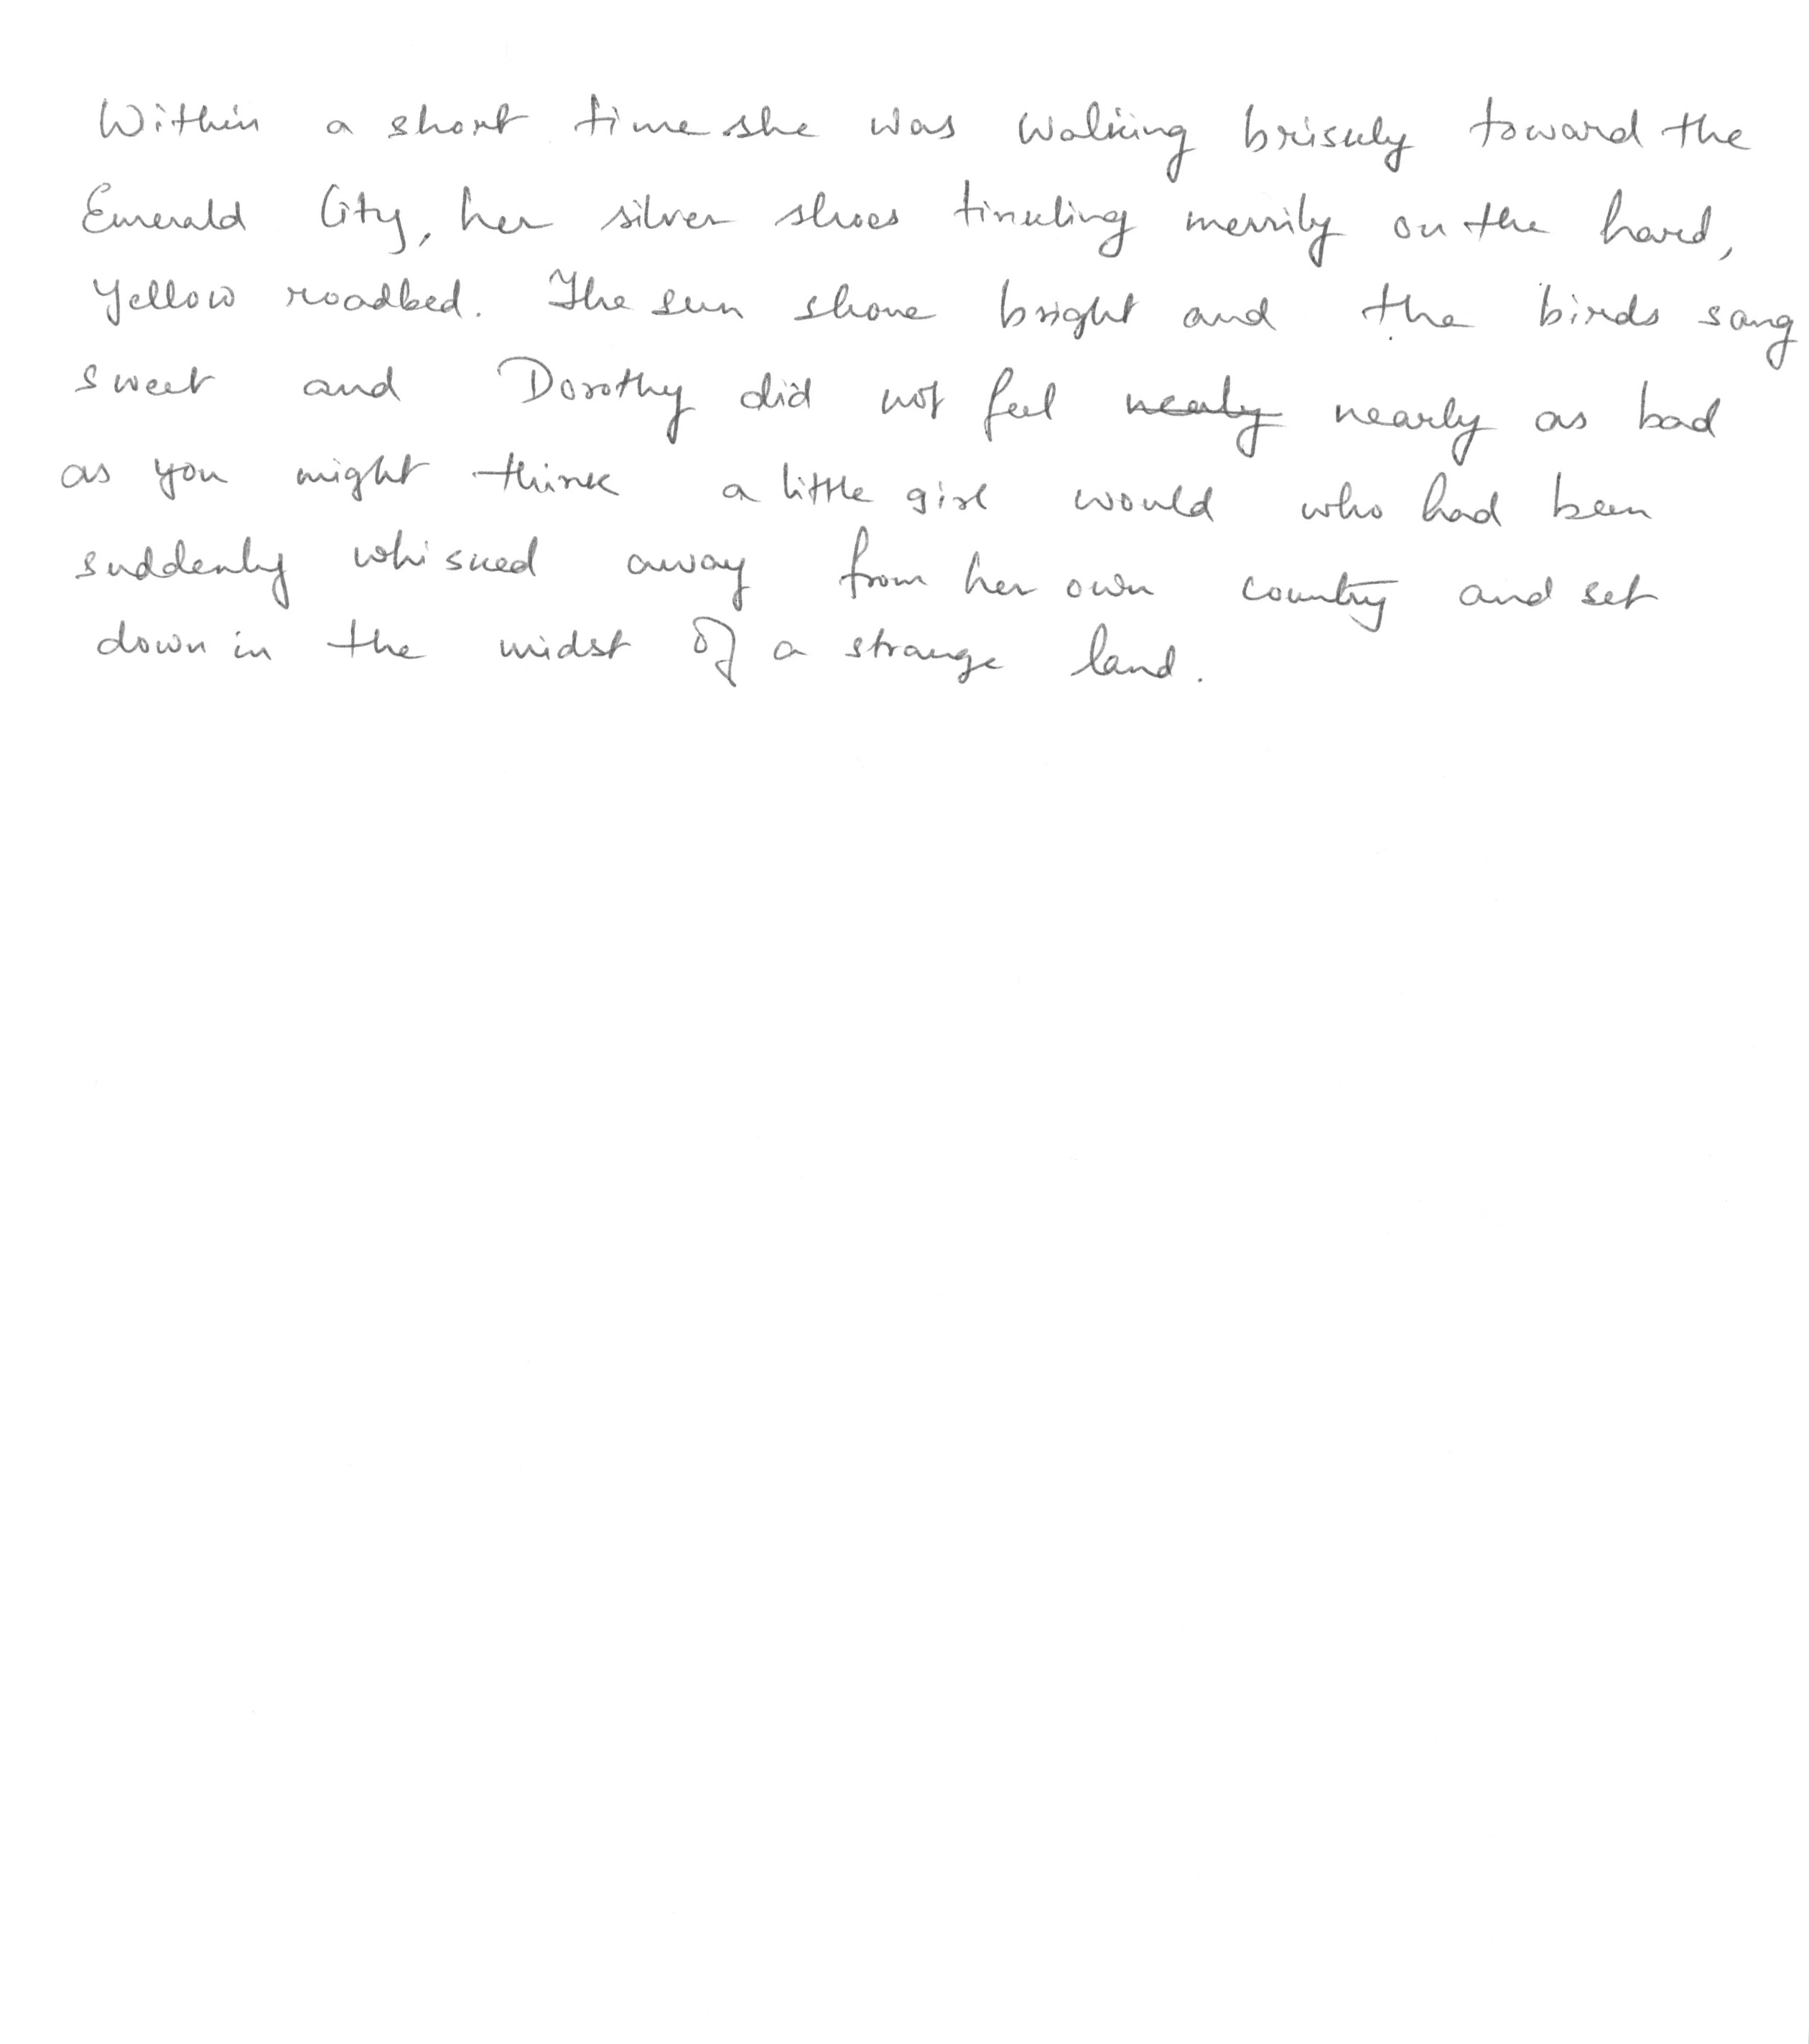 Within a short time she was walking briskly toward the
Emerald City, her silver shoes tinkling merrily on the hard,
yellow roadbed. The sun shone bright and the birds sang
sweet and Dorothy did not feel nearly nearly as bad
as you might think a little girl would who had been
suddenly whisked away from her own country and set
down in the midst of a strange land.